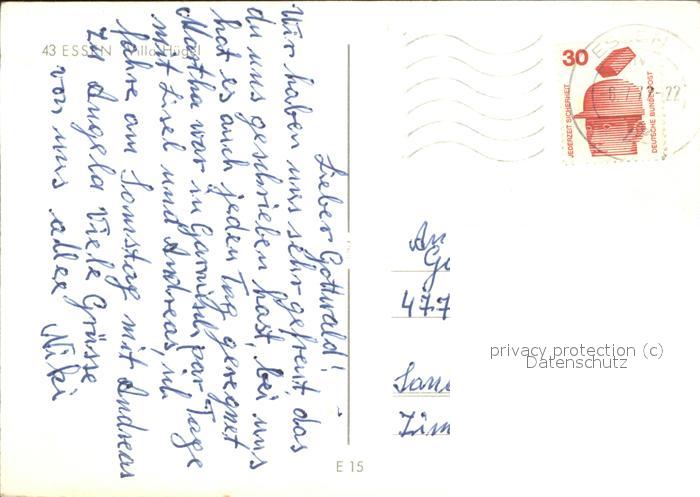 43 ESSEN Villa Hügel
Lieber Gottwald!
Wir haben uns sehr gefreut, das
du uns geschrieben hast, bei uns
hat es auch jeden Tag geregnet
Martha war in Garmisch par Tage
mit Lisel und Andreas, ich
fahre am Somstag mit Andreas
zu Angela Viele Grüsse
von uns allen Niki
E 15
30
JEDERZEIT SICHERHEIT
DEUTSCHE BUNDESPOST
ESSEN
An
477
privacy protection (c)
Datenschutz